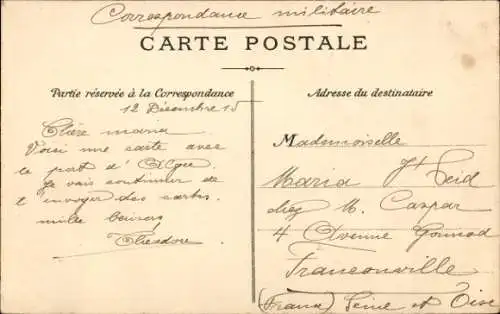 Correspondance militaire
CARTE POSTALE
Partie réservée à la Correspondance
Adresse du destinataire
12 Décembre 15
Chère Maria
Voisi une carte avec
le port d'
Je vais continuer de
t'envoyer des cartes
mille baisers
Théodore
Mademoiselle
Maria
chez M. Caspar
4 Avenue Gounod
Franconville
(France) Seine et Oise